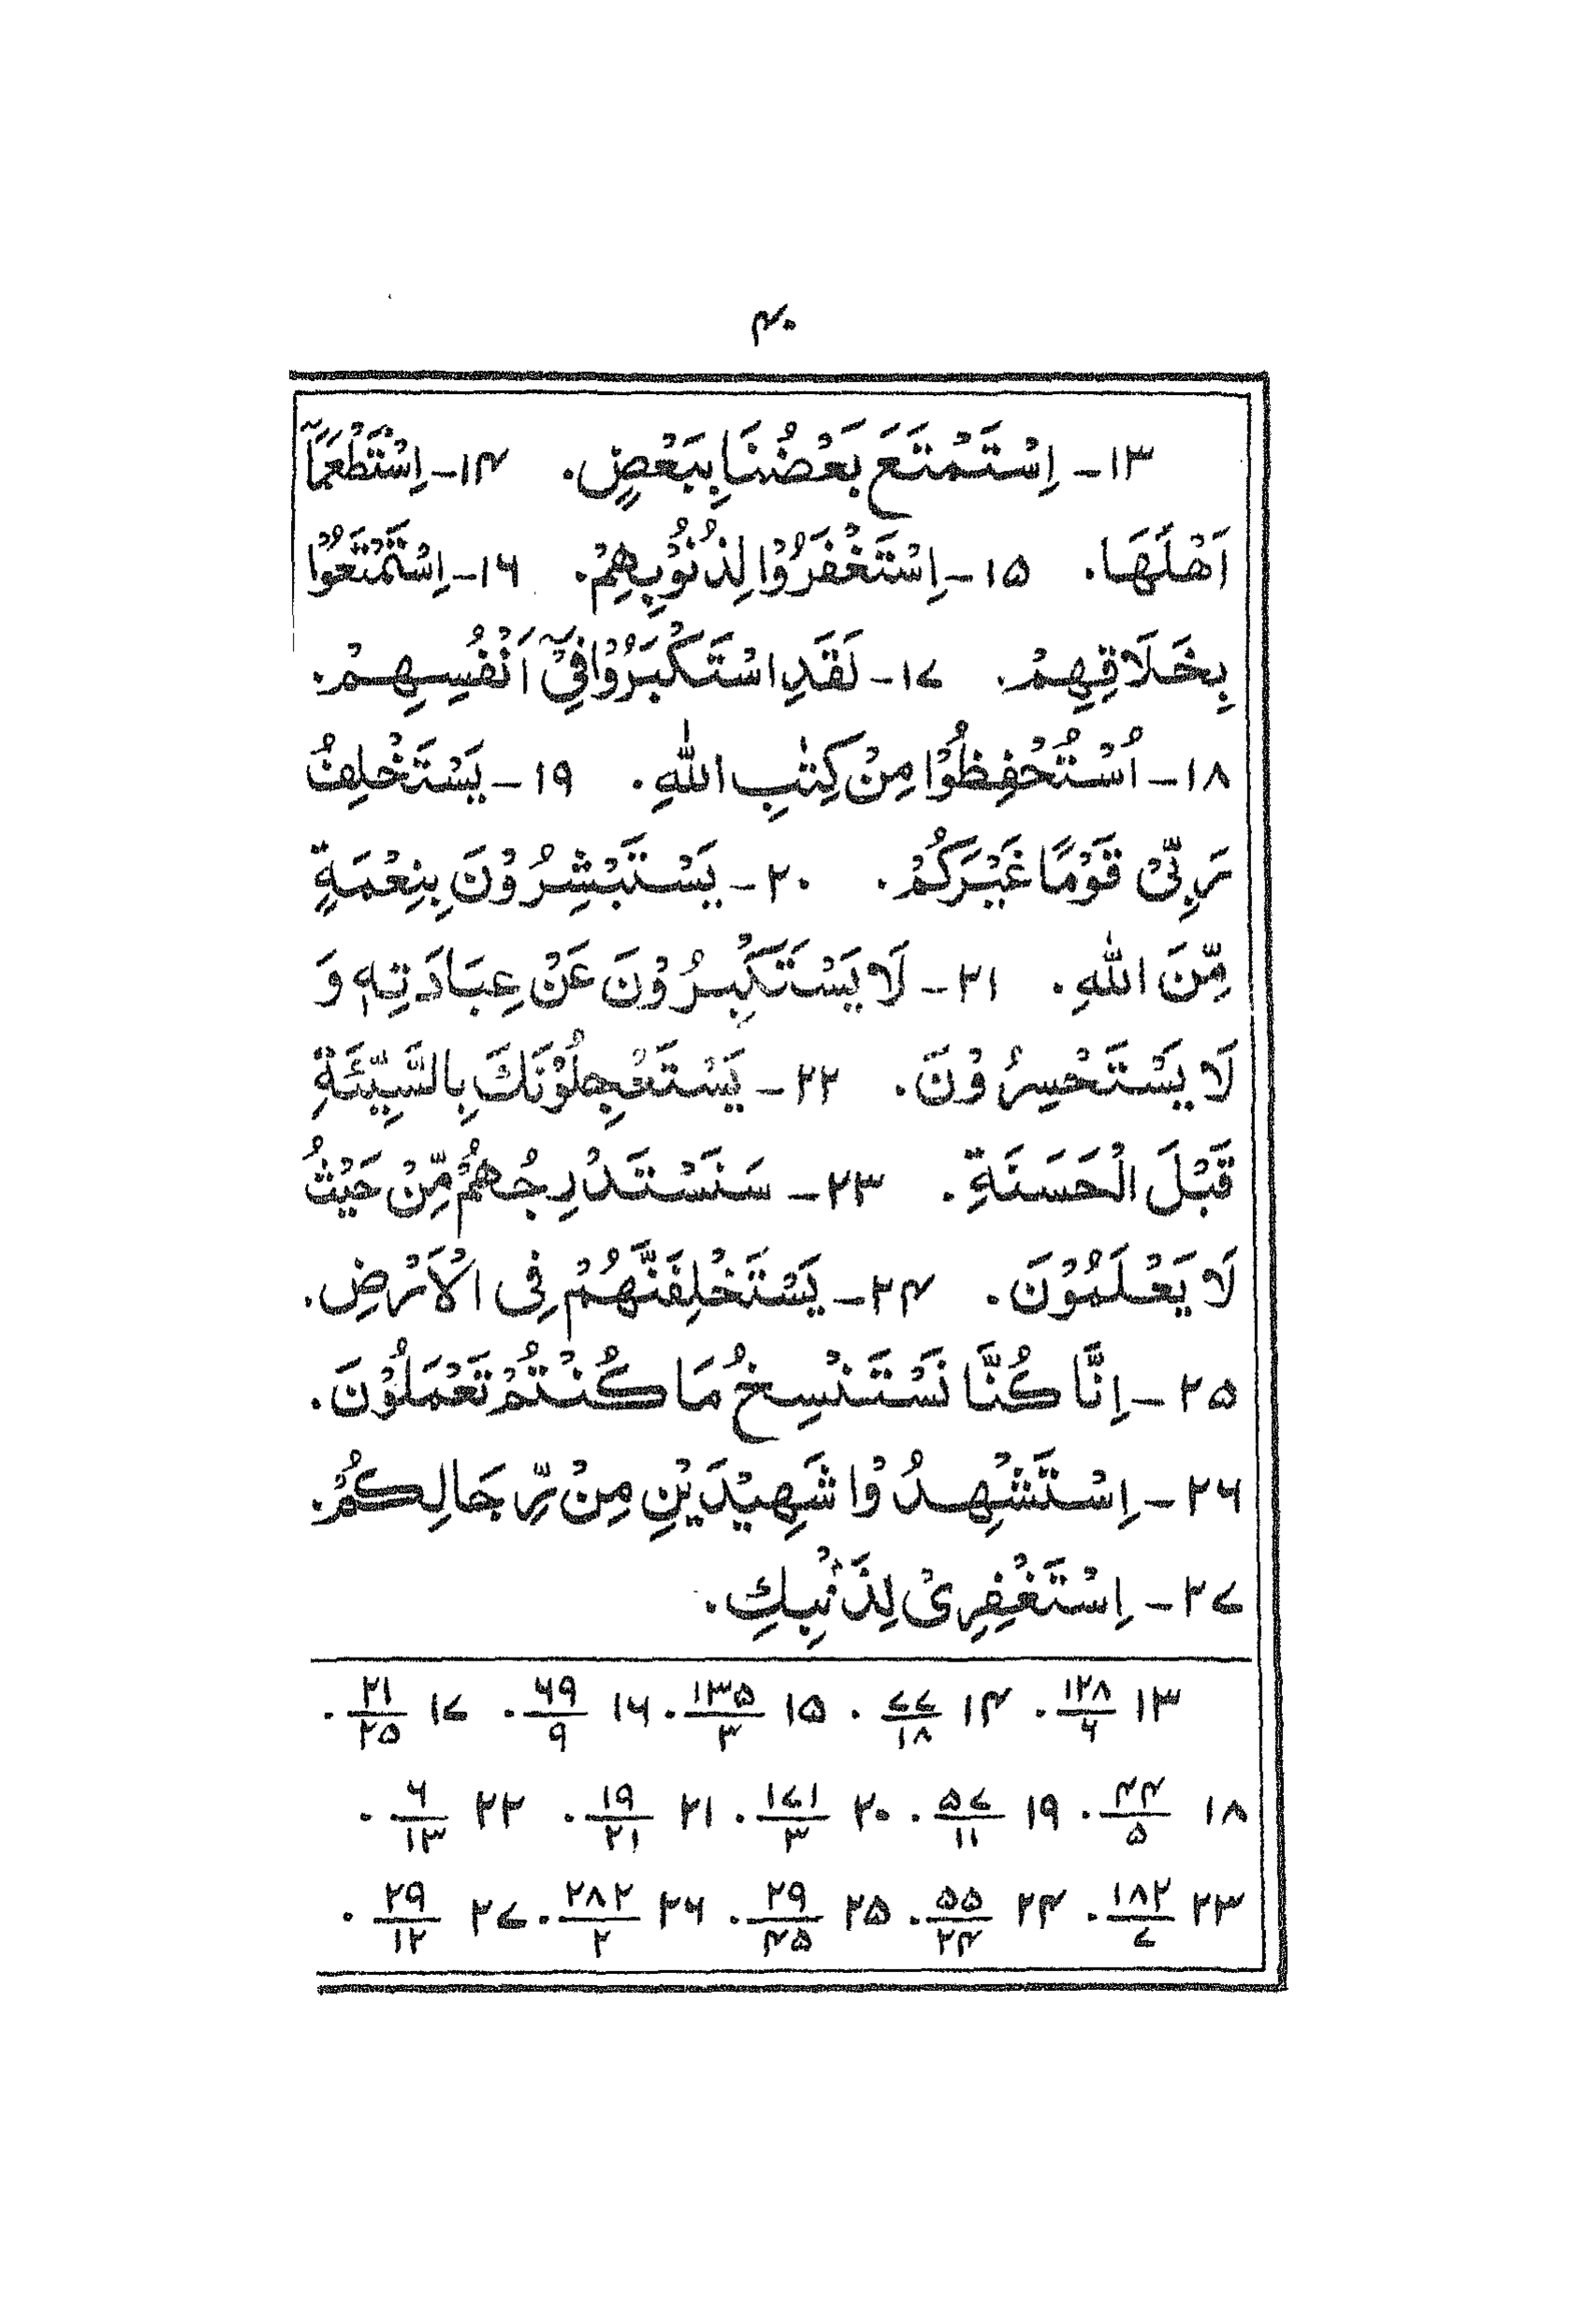 ۴۰
۱۳- اِسْتَمْتَعَ بَعْضُنَا بِبَعْضٍ. ۱۴- اِسْتَطْعَمَآ
اَهْلَهَا. ۱۵- اِسْتَغْفَرُوْا لِذُنُوْبِهِمْ. ۱۶- اِسْتَمْتَعُوْا
بِخَلَاقِهِمْ. ۱۷- لَقَدِ اسْتَكْبَرُوْا فِیْٓ اَنْفُسِهِمْ.
۱۸- اُسْتُحْفِظُوْا مِنْ كِتٰبِ اللّٰهِ. ۱۹- يَسْتَخْلِفُ
رَبِّیْ قَوْمًا غَيْرَكُمْ. ۲۰- يَسْتَبْشِرُوْنَ بِنِعْمَةٍ
مِّنَ اللّٰهِ. ۲۱- لَا يَسْتَكْبِرُوْنَ عَنْ عِبَادَتِهٖ وَ
لَا يَسْتَحْسِرُوْنَ. ۲۲- يَسْتَعْجِلُوْنَكَ بِالسَّيِّئَةِ
قَبْلَ الْحَسَنَةِ. ۲۳- سَنَسْتَدْرِجُهُمْ مِّنْ حَيْثُ
لَا يَعْلَمُوْنَ. ۲۴- يَسْتَخْلِفَنَّهُمْ فِی الْاَرْضِ.
۲۵- اِنَّا كُنَّا نَسْتَنْسِخُ مَا كُنْتُمْ تَعْمَلُوْنَ.
۲۶- اِسْتَشْهِدُوْا شَهِيْدَيْنِ مِنْ رِّجَالِكُمْ.
۲۷- اِسْتَغْفِرِیْ لِذَنْۢبِكِ.
۱۳ ۱۲۸/۶. ۱۴ ۷۷/۱۸. ۱۵ ۱۳۵/۳. ۱۶ ۶۹/۹. ۱۷ ۲۱/۲۵.
۱۸ ۴۴/۵. ۱۹ ۵۷/۱۱. ۲۰ ۱۷۱/۳. ۲۱ ۱۹/۲۱. ۲۲ ۶/۱۳.
۲۳ ۱۸۲/۷. ۲۴ ۵۵/۲۴. ۲۵ ۲۹/۴۵. ۲۶ ۲۸۲/۲. ۲۷ ۲۹/۱۲.